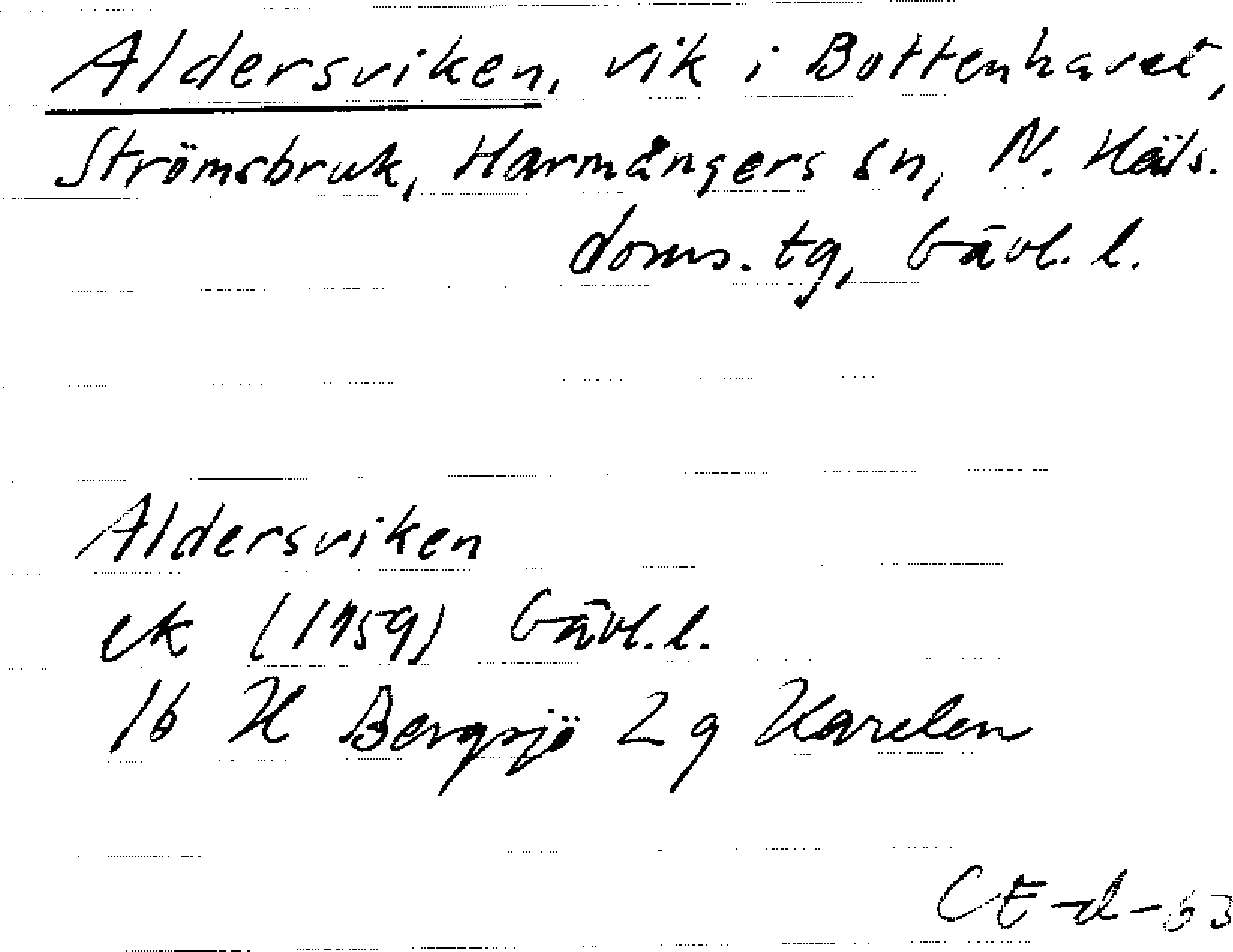 Aldersviken, vik i Bottenhavet,
Strömsbruk, Harmångers sn, N. Häls.
doms. tg, Gävl. l.
Aldersviken
ek (1959) Gävl. l.
16 H Bergsjö 2 g Harelen
CE-d-63